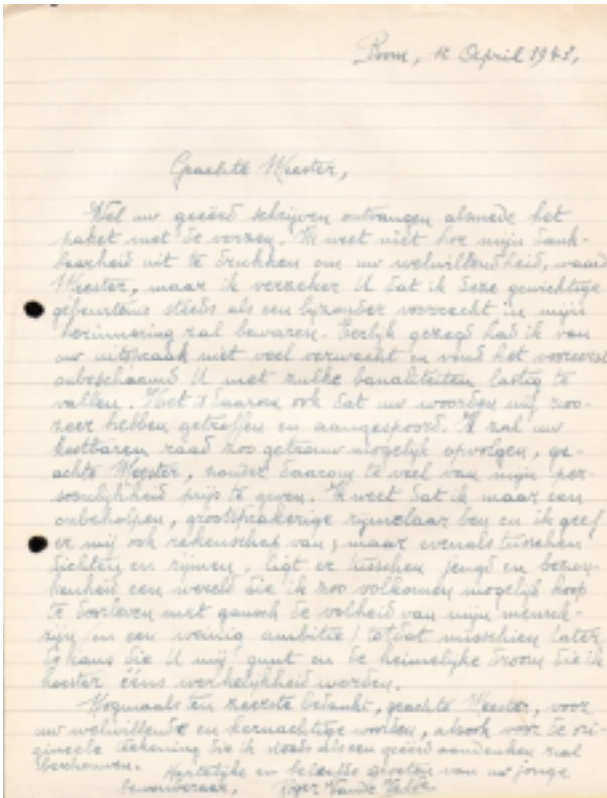 Boom, April 194
Geachte Meester,
Wel uw geëerd schrijven ontvangen alsmede het
paket met de verzen. Ik weet niet hoe mijn dank-
baarheid uit te drukken om uw welwillendheid, waarde
Meester, maar ik verzeker U dat ik deze gewichtige
gebeurtenis steeds als een bijzonder voorrecht in mijn
herinnering zal bewaren. Eerlijk gezegd had ik van
uw uitspraak niet veel verwacht en vond het vooreerst
onbeschaamd U met zulke banaliteiten lastig te
vallen. Het is daarom ook dat uw woorden mij zoo-
zeer hebben getroffen en aangespoord. Ik zal uw
kostbaren raad zoo getrouw mogelijk opvolgen, ge-
achte Meester, zonder daarom te veel van mijn per-
soonlijkheid prijs te geven. Ik weet dat ik maar een
onbeholpen, grootsprakerige rijmelaar ben en ik geef
er mij ook rekenschap van; maar evenals tusschen
dichten en rijmen, ligt er tusschen jeugd en bezon-
kenheid een wereld die ik zoo volkomen mogelijk hoop
te doorleven met gansch de volheid van mijn mensch-
zijn en een weinig ambitie! totdat misschien later
de kans die U mij gunt en de heimelijke droom die ik
koester eens werkelijkheid worden.
Nogmaals ten zeerste bedankt, geachte Meester, voor
uw welwillende en kernachtige woorden, alsook voor de ori-
gineele tekening die ik steeds als een geëerd aandenken zal
beschouwen.
Hartelijke en beleefde groeten van uw jonge
bewonderaar, Roger Van de Velde